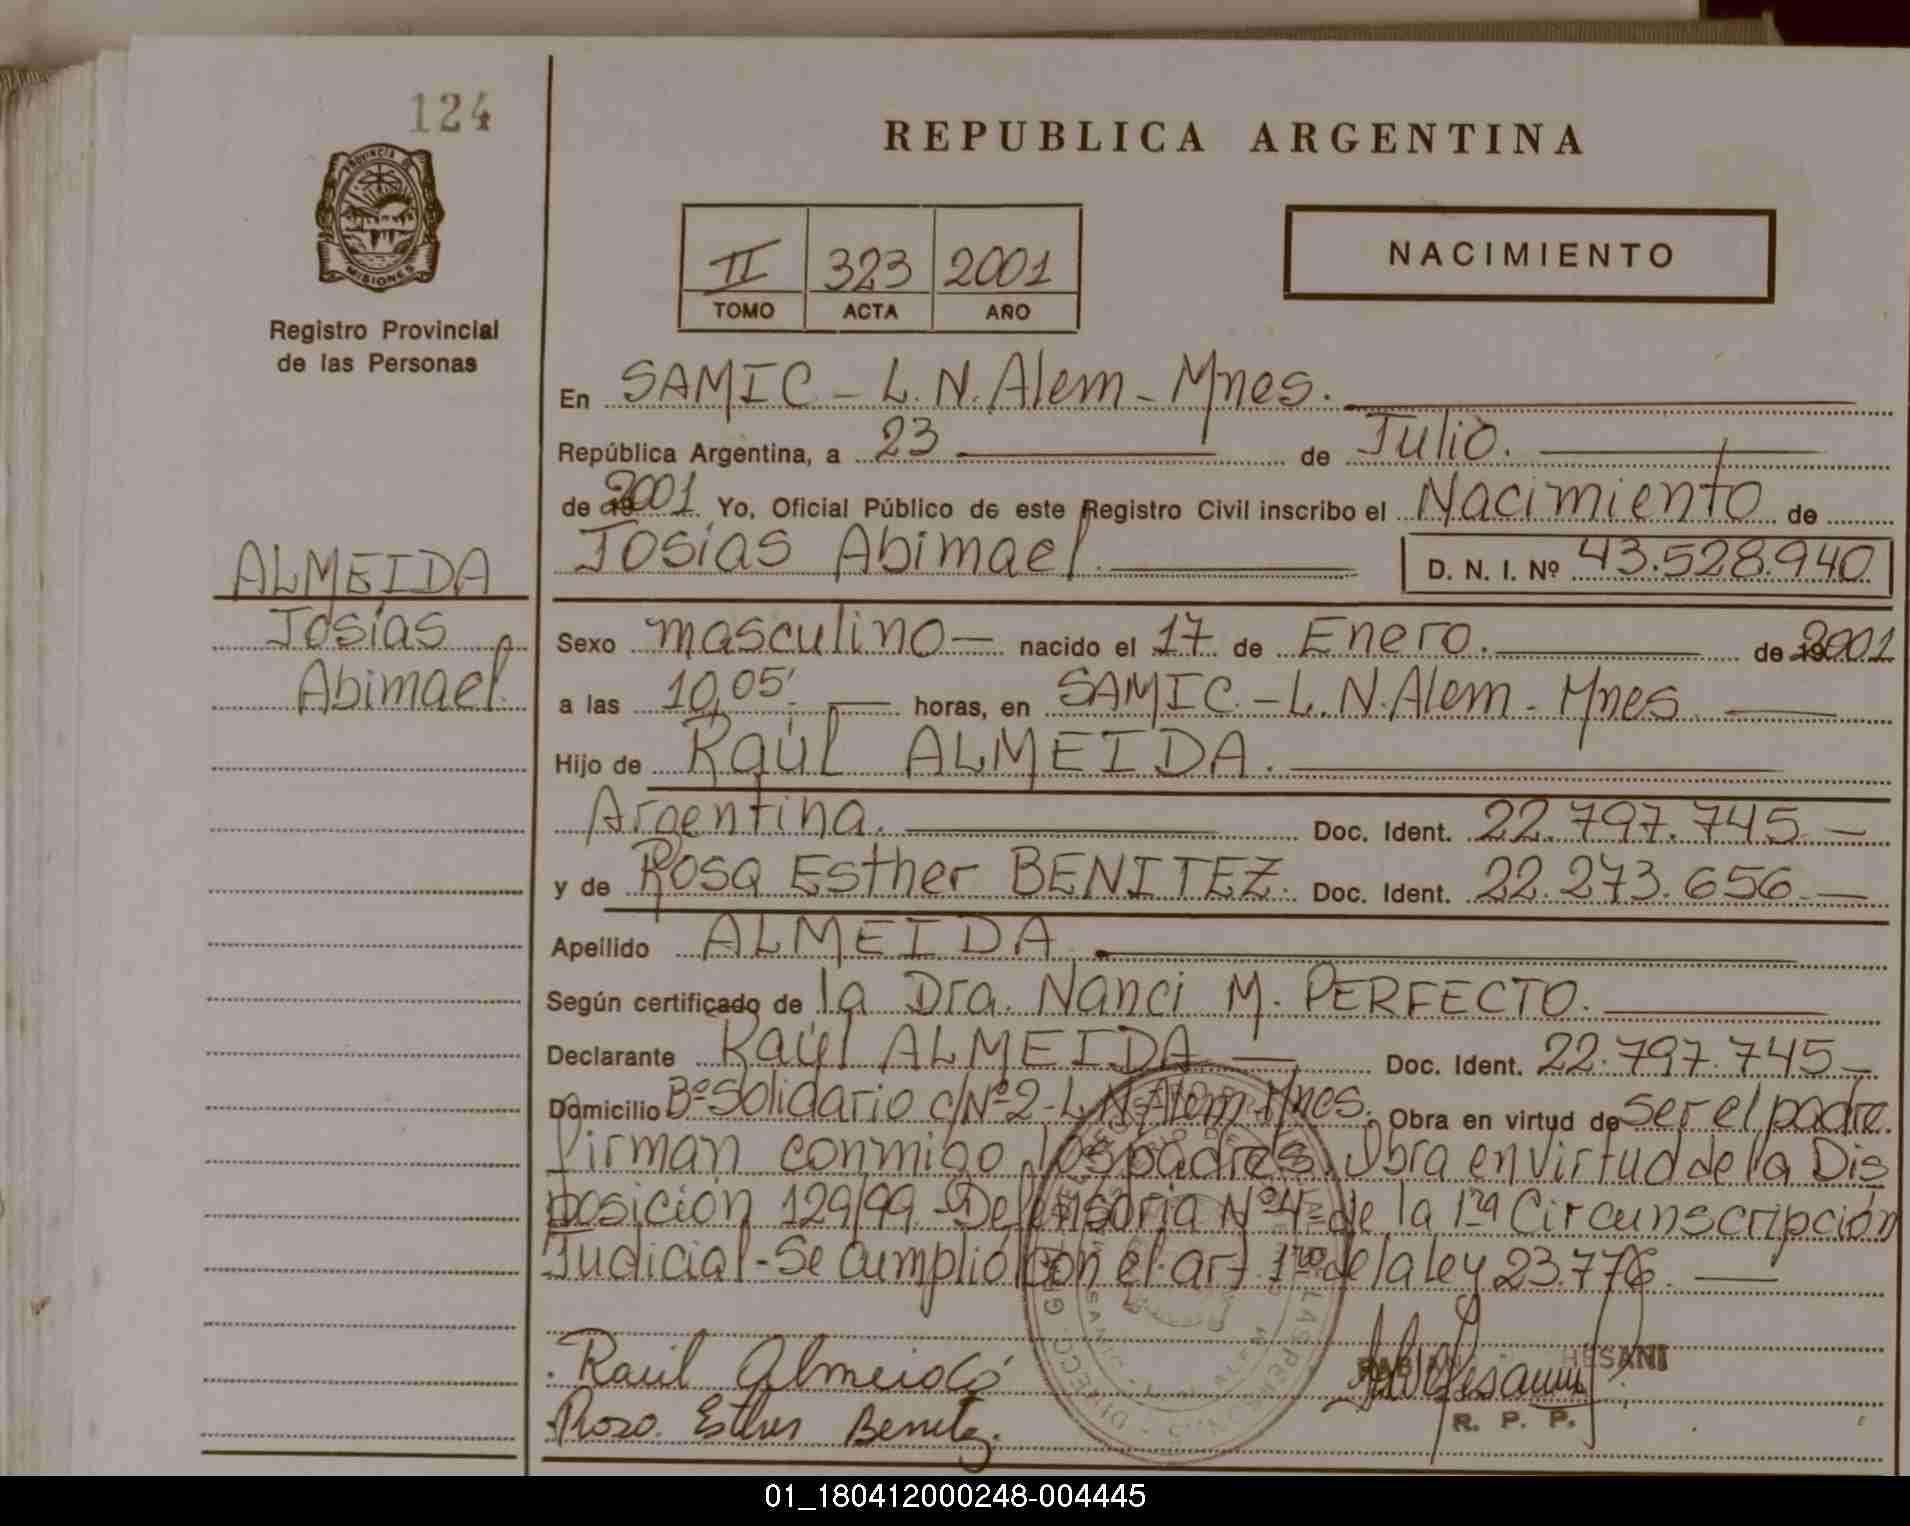 124
PROVINCIA DE
MISIONES
Registro Provincial
de las Personas
ALMEIDA
Josías
Abimael.
REPUBLICA ARGENTINA
II 323 2001
TOMO ACTA AÑO
NACIMIENTO
En SAMIC - L. N. Alem - Mnes.
República Argentina, a 23 de Julio.
de 2001 Yo, Oficial Público de este Registro Civil inscribo el Nacimiento de
Josías Abimael. D. N. I. Nº 43.528.940
Sexo masculino — nacido el 17 de Enero. de 2001
a las 10,05' — horas, en SAMIC. - L. N. Alem - Mnes
Hijo de Raúl ALMEIDA.
Argentina. Doc. Ident. 22.797.745 —
y de Rosa Esther BENITEZ. Doc. Ident. 22.273.656 —
Apellido ALMEIDA
Según certificado de la Dra. Nanci M. PERFECTO.
Declarante Raúl ALMEIDA — Doc. Ident. 22.797.745 —
Domicilio Bº Solidario c/Nº 2 - L. N. Alem Mnes. Obra en virtud de ser el padre.
firman conmigo los padres. Obra en virtud de la Dis
posición 129/99 Defensoria Nº 4 de la 1ra Circunscripción
Judicial - Se cumplió con el art. 1ro de la ley 23.776. —
Raúl Almeida
Rosa Esther Benitez.
HESANI
R. P. P.
01_180412000248-004445